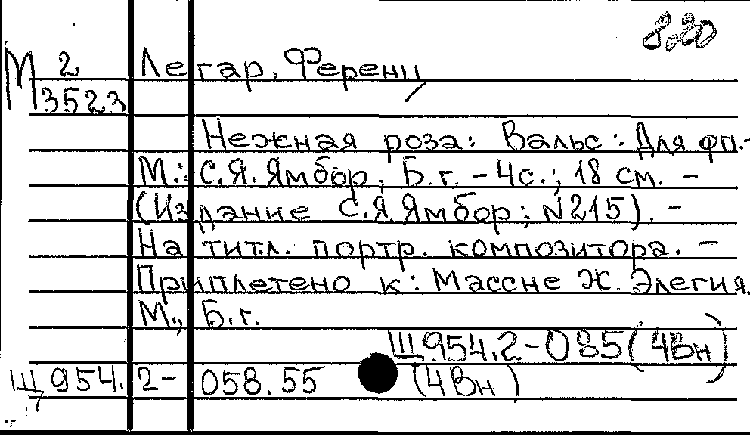 8.20
М 2
3523
Легар, Ференц
Нежная роза: Вальс: Для фп.-
М.: С.Я. Ямбор, Б.г. - 4с.; 18 см. -
(Издание С.Я Ямбор; N215). -
На титл. портр. композитора. -
Приплетено к: Массне Ж. Элегия.
М., Б.г.
Ш954.2-085(4Вн)
Ш954.2-058.55 (4Вн)
7